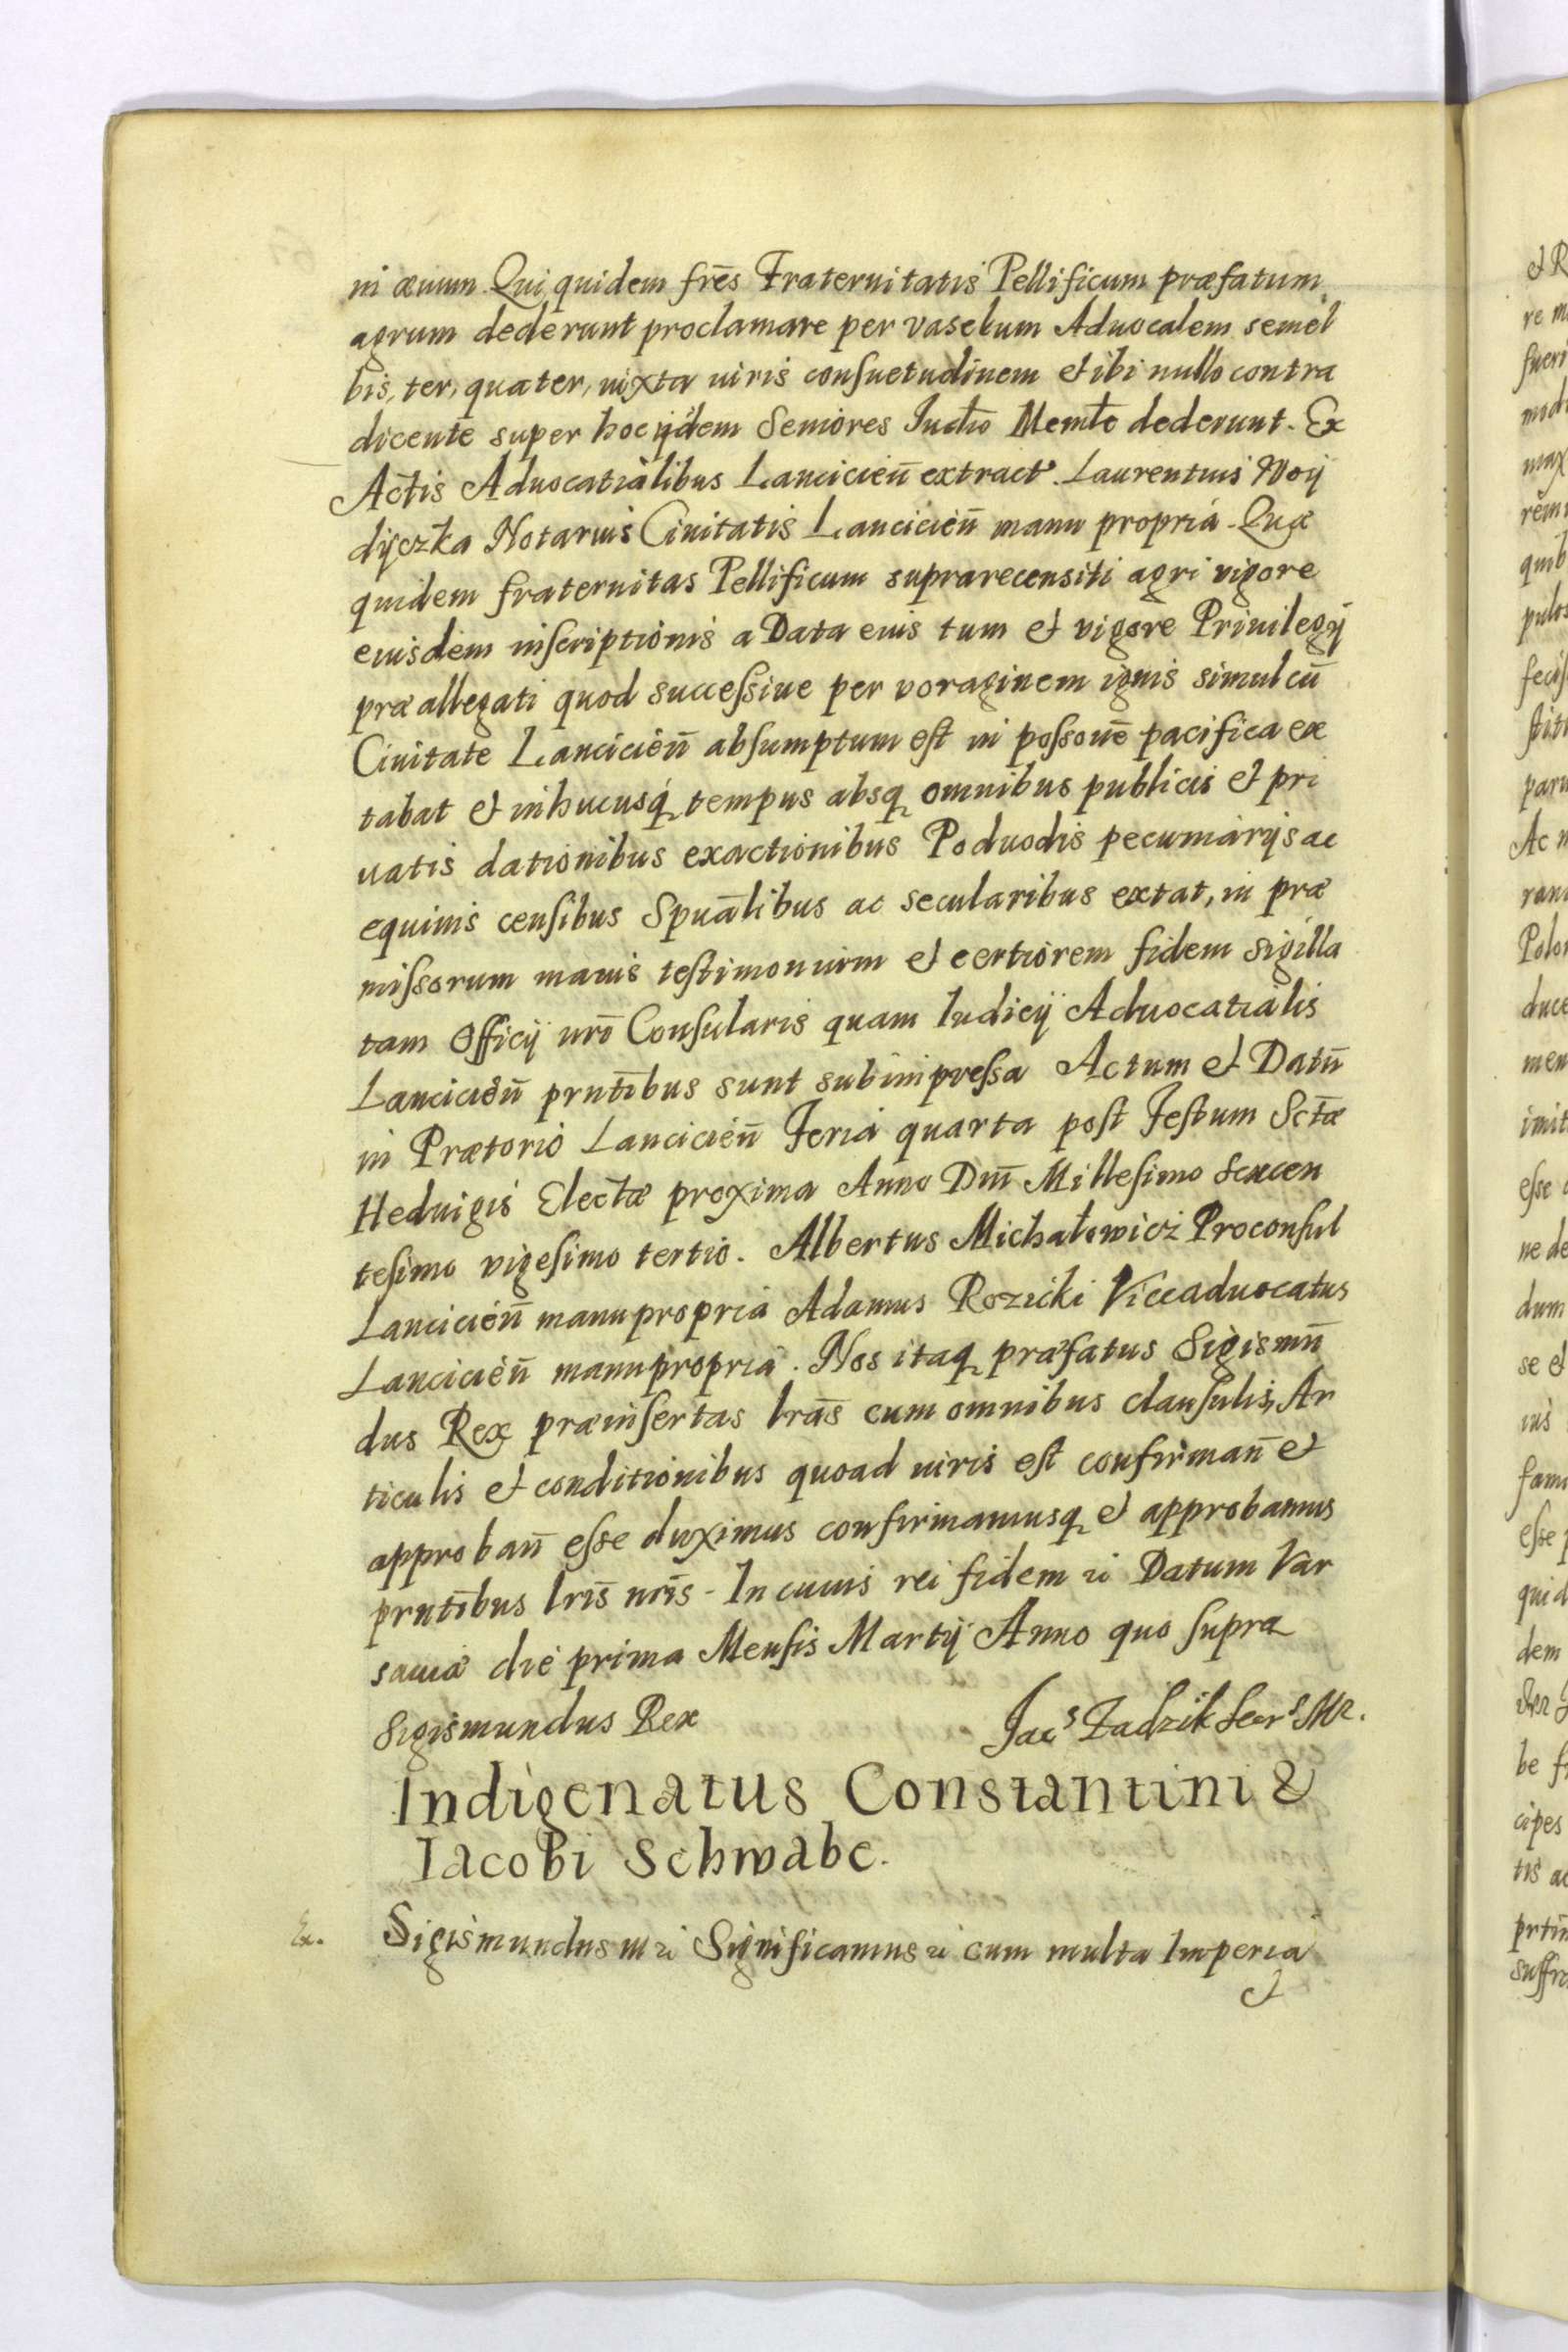 in æuum. Qui quidem frēs Fraternitatis Pellificum præfatum
agrum dederunt proclamare per vasebum Aduocalem semel
bis, ter, quater, iuxta iuris consuetudinem et ibi nullo contra
dicente super hoc ijdem Seniores Iudtio Memle dederunt. Ex
Actis Aduocatialibus Lancicień extract. Laurentius Woy
dyczka Notarius Ciuitatis Lancicień manu propria. Quæ
quidem fraternitas Pellificum suprarecensiti agri vigore
eiusdem inscriptionis a Data eius tum et vigore Priuilegij
præallegati quod successiue per voraginem ignis simul cū
Ciuitate Lancicień absumptum est in possonē pacifica ex
tabat et inhucusq tempus absq omnibus publicis et pri
uatis dationibus exactionibus Poduodis pecuniarijs ac
equinis censibus Spuālibus ac secularibus extat, in præ
missorum maius testimonium et certiorem fidem Sigilla
tam Officij nrī Consularis quam Iudicij Aduocatialis
Lancicień prntībus sunt subimpressa Actum et Datū
in Prætorio Lancicień Feria quarta post Festum Sctæ
Heduigis Electæ proxima Anno Dnī Millesimo Sexcen
tesimo vigesimo tertio. Albertus Michałowicz Proconsul
Lancicień manu propria Adamus Rozicki Viceaduocatus
Lancicień manu propria. Nos itaq præfatus Sigismū
dus Rex præinsertas lrās cum omnibus clausulis, Ar
ticulis et conditionibus quoad iuris est confirmañ et
approbañ esse duximus confirmamusq et approbamus
prntībus lrīs nrīs. In cuius rei fidem zc Datum Var
sauiæ die prima Mensis Martij Anno quo supra
Sigismundus Rex Jacs Zadzik Secrs MR.
Indigenatus Constantini &
Iacobi Schwabe.
Ex. Sigismundus III zc Significamus zc cum multa Imperia
et